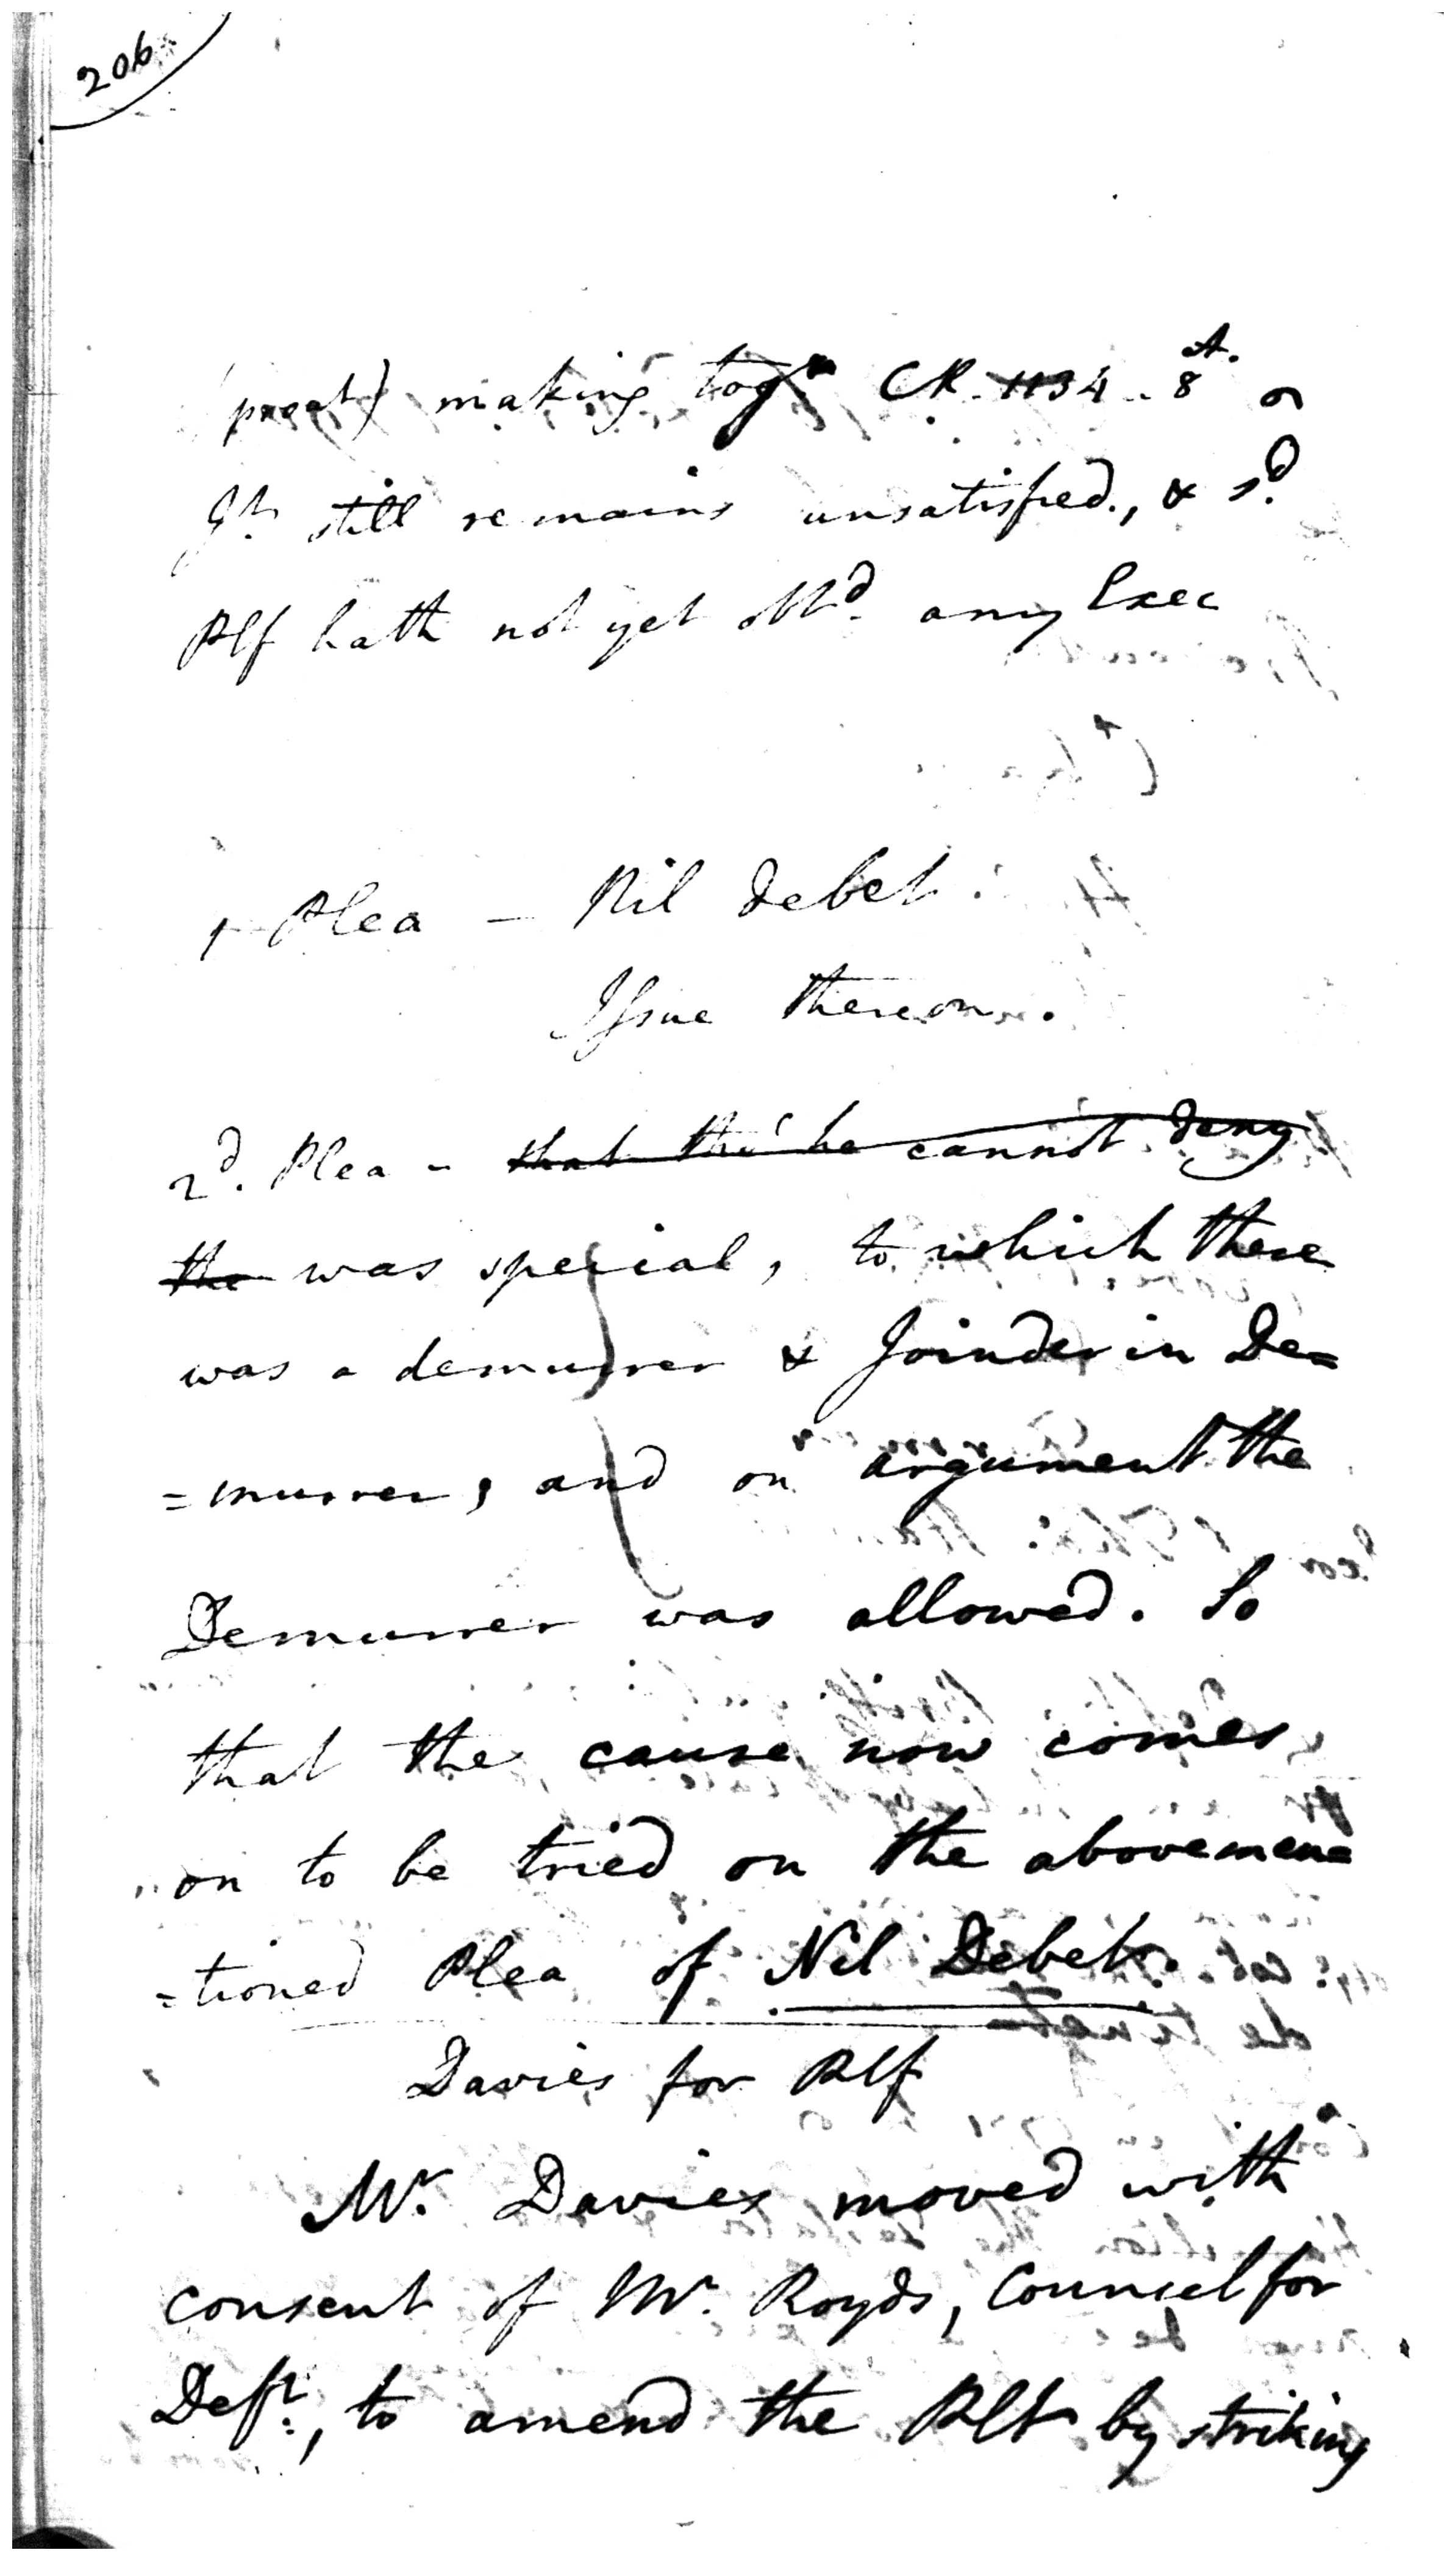 206
making togr CR. 1134.. 8 A.
Jt. still remains unsatisfied., & sd.
Plf hath not yet obtd. any Exec
1 Plea — Nil debet.
Issue thereon.
2d. Plea - that tho' he cannot deny
the was special, to which there
was a demurrer & Joinder in De=
=murrer, and on argument the
Demurrer was allowed. So
that the cause now comes
on to be tried on the abovemen=
=tioned Plea of Nil Debet.
Davies for Plf
Mr. Davies moved with
consent of Mr. Royds, Counsel for
Deft., to amend the Plt by striking